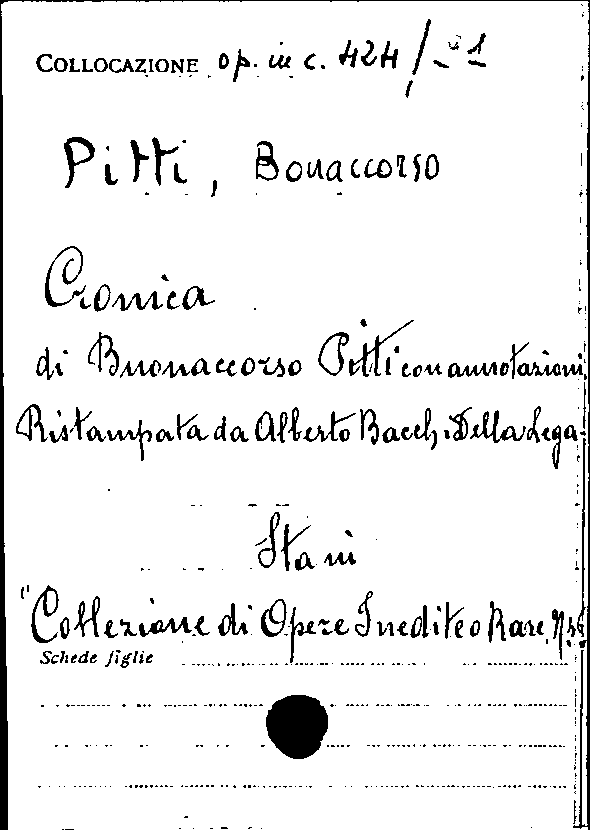 COLLOCAZIONE op. in c. 424/
Pitti, Bonaccorso
Cronica
di Buonaccorso Pitti con annotazioni
Ristampata da Alberto Bacchi Della Lega.
Sta in
"Collezione di Opere Inedite o Rare, N.
Schede figlie